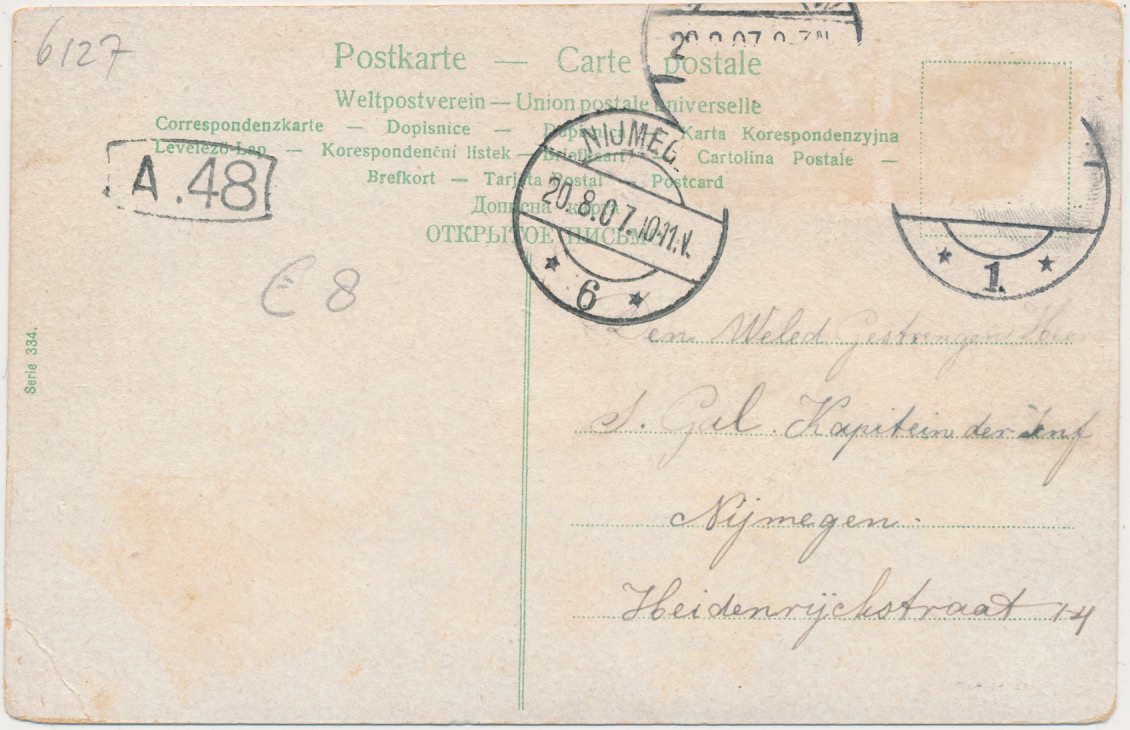 6127
Postkarte — Carte postale
Weltpostverein — Union postale universelle
Correspondenzkarte — Dopisnice — Dopisnica — Karta Korespondenzyjna
Levelező-Lap — Korespondenční listek — Briefkaart — Cartolina Postale —
Brefkort — Tarjeta Postal — Postcard
Дописна карта
ОТКРЫТОЕ ПИСЬМО
A.48
NIJMEG.
20.8.07.10-11.V.
6
1.
€ 8
Serie 334.
Den Weled. Gestrengen
S. Gal. Kapitein der Inf
Nijmegen.
Heidenrijckstraat 14